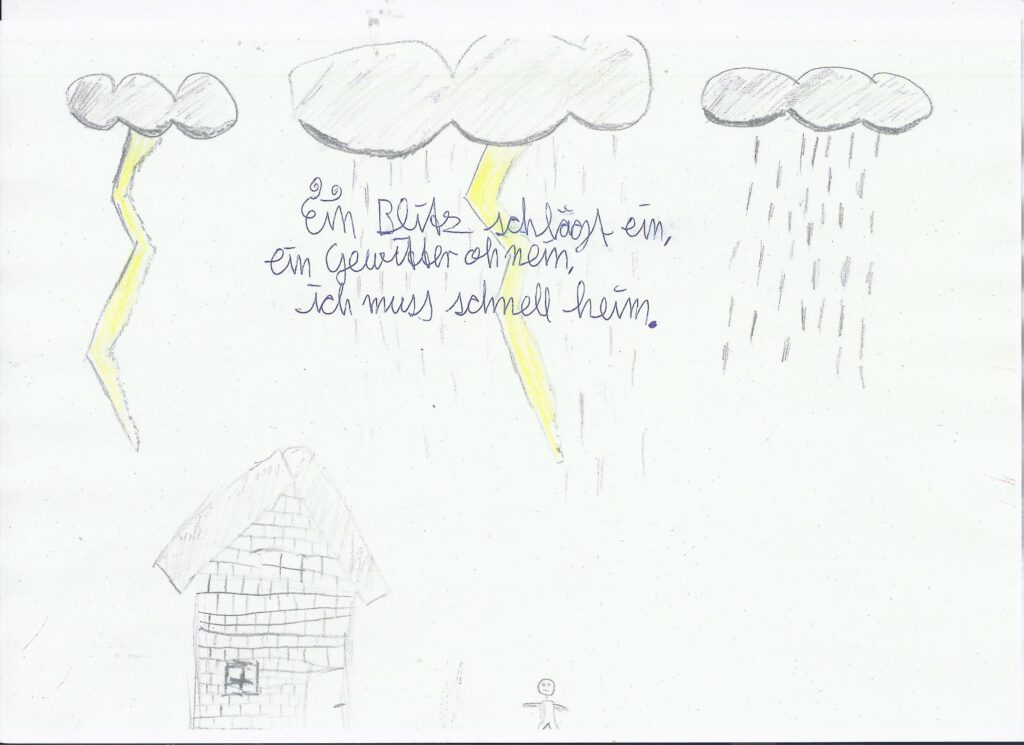 Ein Blitz schlägt ein,
ein Gewitter ohnein,
ich muss schnell heim.